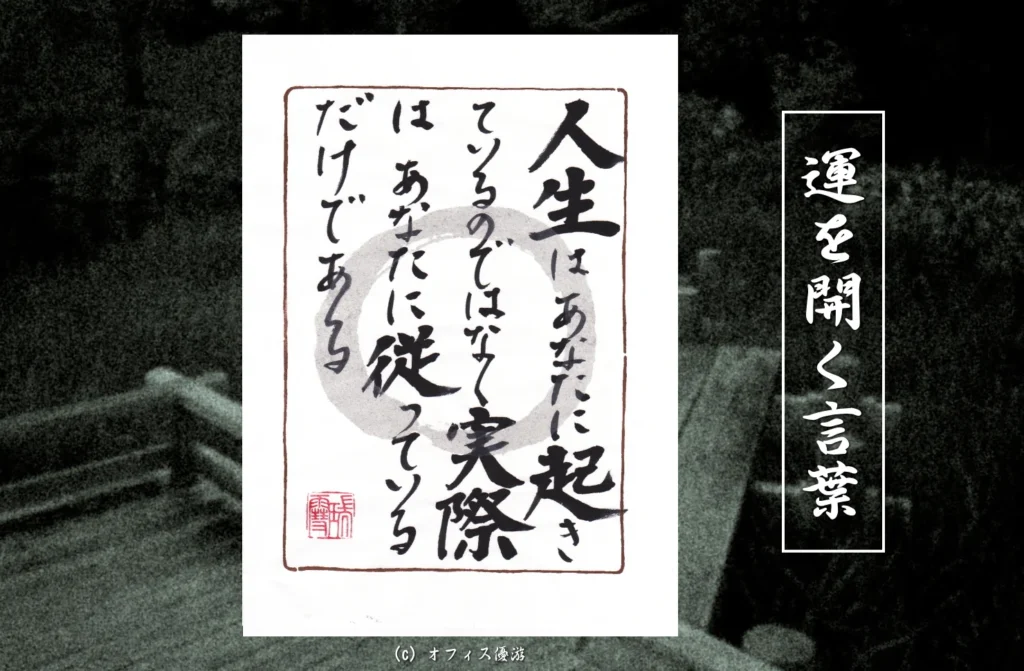 人生はあなたに起き
ているのではなく実際
は あなたに従っている
だけである
運を開く言葉
(c) オフィス優游